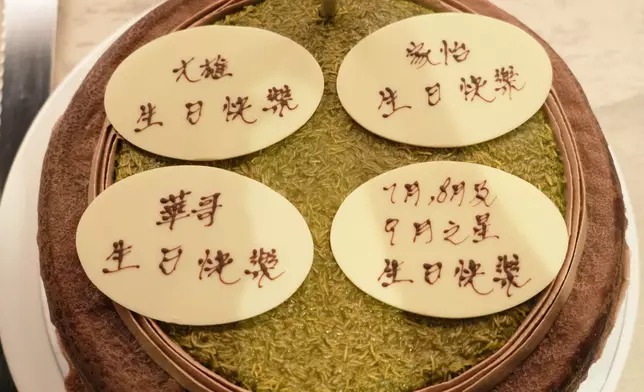 尤雄
生日快樂
家怡
生日快樂
華哥
生日快樂
7月,8月及
9月之星
生日快樂